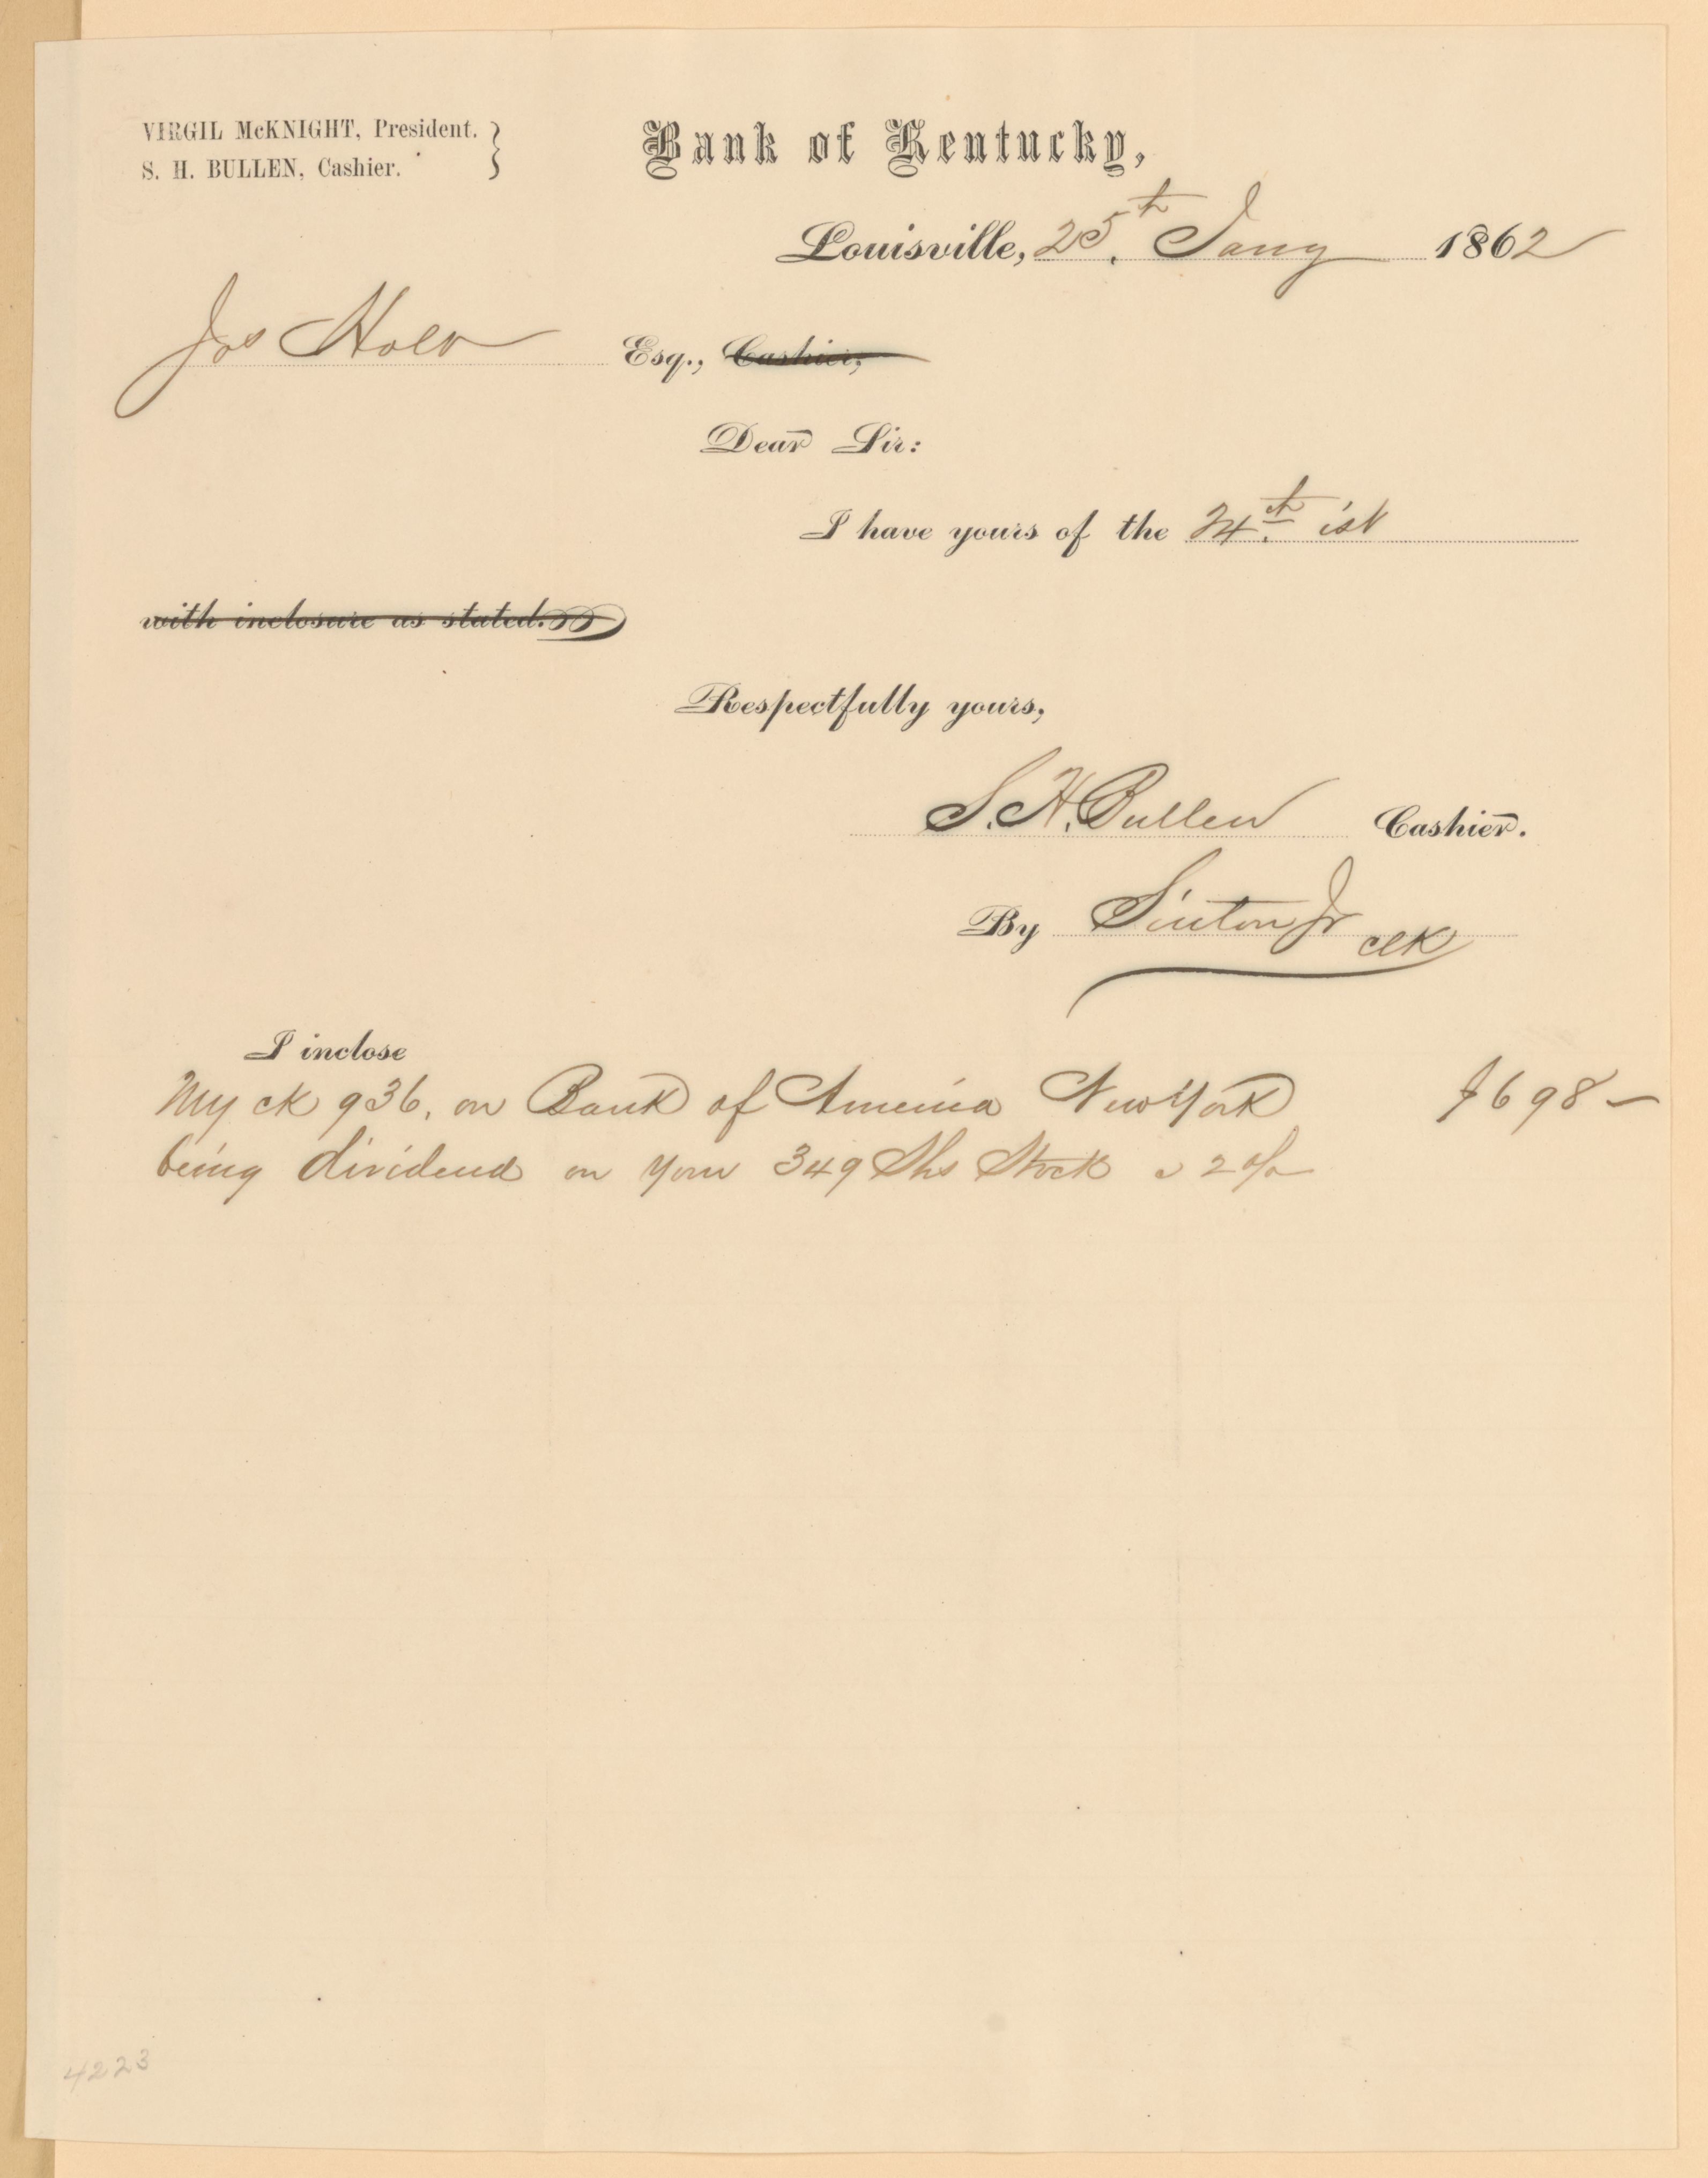 VIRGIL McKNIGHT, President.
S. H. BULLEN, Cashier.
Bank of Kentucky,
Louisville, 25th. Jany 1862
Jos Holt Esq., Cashier,
Dear Sir:
I have yours of the 24th. ist
with inclosure as stated.
Respectfully yours,
S. H. Bullen Cashier.
By Sinton Jr clk
I inclose
My ck 936, on Bank of America New York $698 –
being dividend on your 349 Shs Stock a 2 %
4223